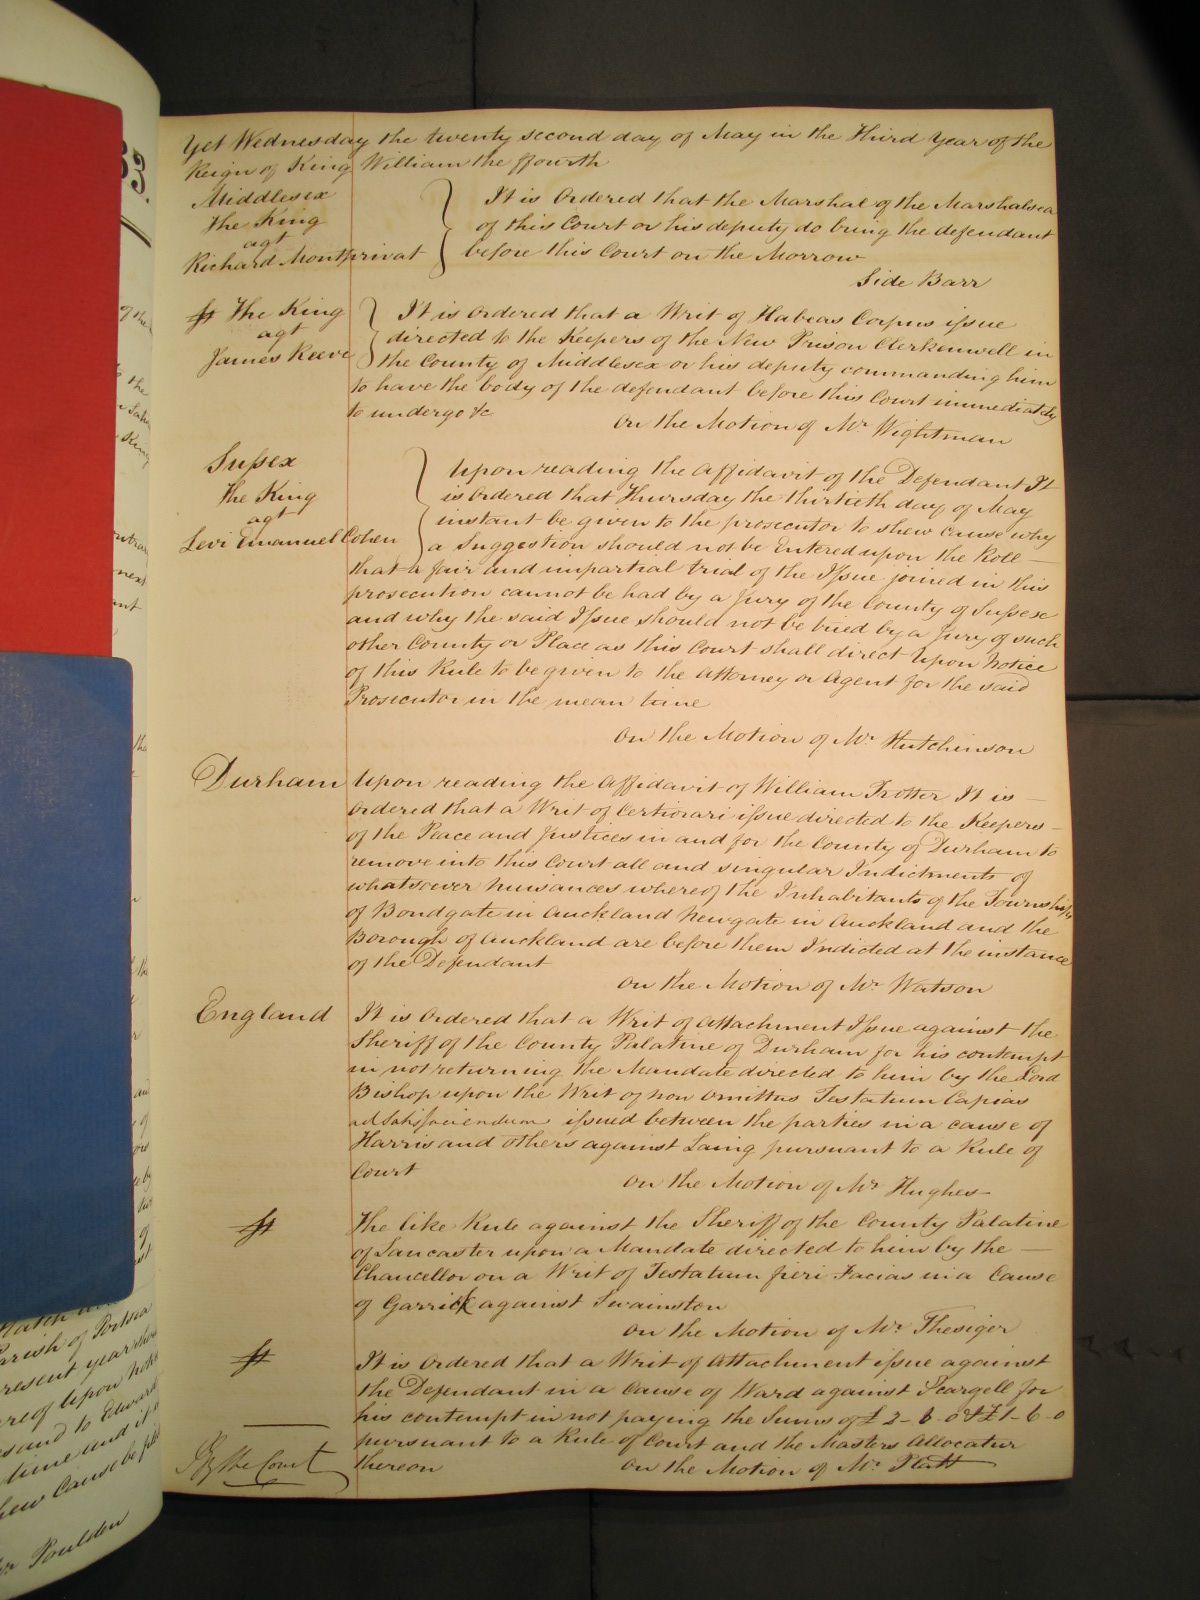 Yet Wednesday the twenty second day of May in the Third Year of the
Reign of King William the ffourth
Middlesex
The King
agt
Richard Montprivat
It is Ordered that the Marshal of the Marshalsea
of this Court or his deputy do bring the defendant
before this Court on the Morrow
Side Barr
The King
agt
James Reeve
It is ordered that a Writ of Habeas Corpus issue
directed to the Keepers of the New Prison Clerkenwell in
the County of Middlesex or his deputy commanding him
to have the body of the defendant before this Court immediately
to undergo &c
On the Motion of Mr Wightman
Sussex
The King
agt
Levi Emanuel Cohen
Upon reading the Affidavit of the Defendant It
is Ordered that Thursday the thirtieth day of May
instant be given to the prosecutor to shew cause why
a Suggestion should not be Entered upon the Roll
that a fair and impartial trial of the Issue joined in this
prosecution cannot be had by a Jury of the County of Sussex
and why the said Issue should not be tried by a Jury of such
other County or Place as this Court shall direct Upon Notice
of this Rule to be given to the Attorney or Agent for the said
Prosecutor in the mean time
On the Motion of Mr Hutchinson
Durham
Upon reading the Affidavit of William Trotter It is
Ordered that a Writ of Certiorari issue directed to the Keepers
of the Peace and Justices in and for the County of Durham to
remove into this Court all and singular Indictments of
whatsoever nuisances whereof the Inhabitants of the Townships
of Bondgate in Auckland Newgate in Auckland and the
Borough of Auckland are before them Indicted at the instance
of the Defendant
On the Motion of Mr Watson
England
It is Ordered that a Writ of Attachment Issue against the
Sheriff of the County Palatine of Durham for his contempt
in not returning the Mandate directed to him by the Lord
Bishop upon the Writ of non omittas Testatum Capias
ad Satisfaciendum issued between the parties in a cause of
Harris and others against Laing pursuant to a Rule of
Court
On the Motion of Mr Hughes
The like Rule against the Sheriff of the County Palatine
of Lancaster upon a Mandate directed to him by the
Chancellor on a Writ of Testatum fieri Facias in a Cause
of Garrick against Swainston
On the Motion of Mr Thesiger
It is Ordered that a Writ of Attachment issue against
the Defendant in a Cause of Ward against Scargell for
his contempt in not paying the Sums of £ 2-6-0 & £1-6-0
pursuant to a Rule of Court and the Masters Allocatur
thereon
On the Motion of Mr Platt
By the Court
arish of Portsea
present year
Upon
and to Edward
time and
shew Cause be
Poulden